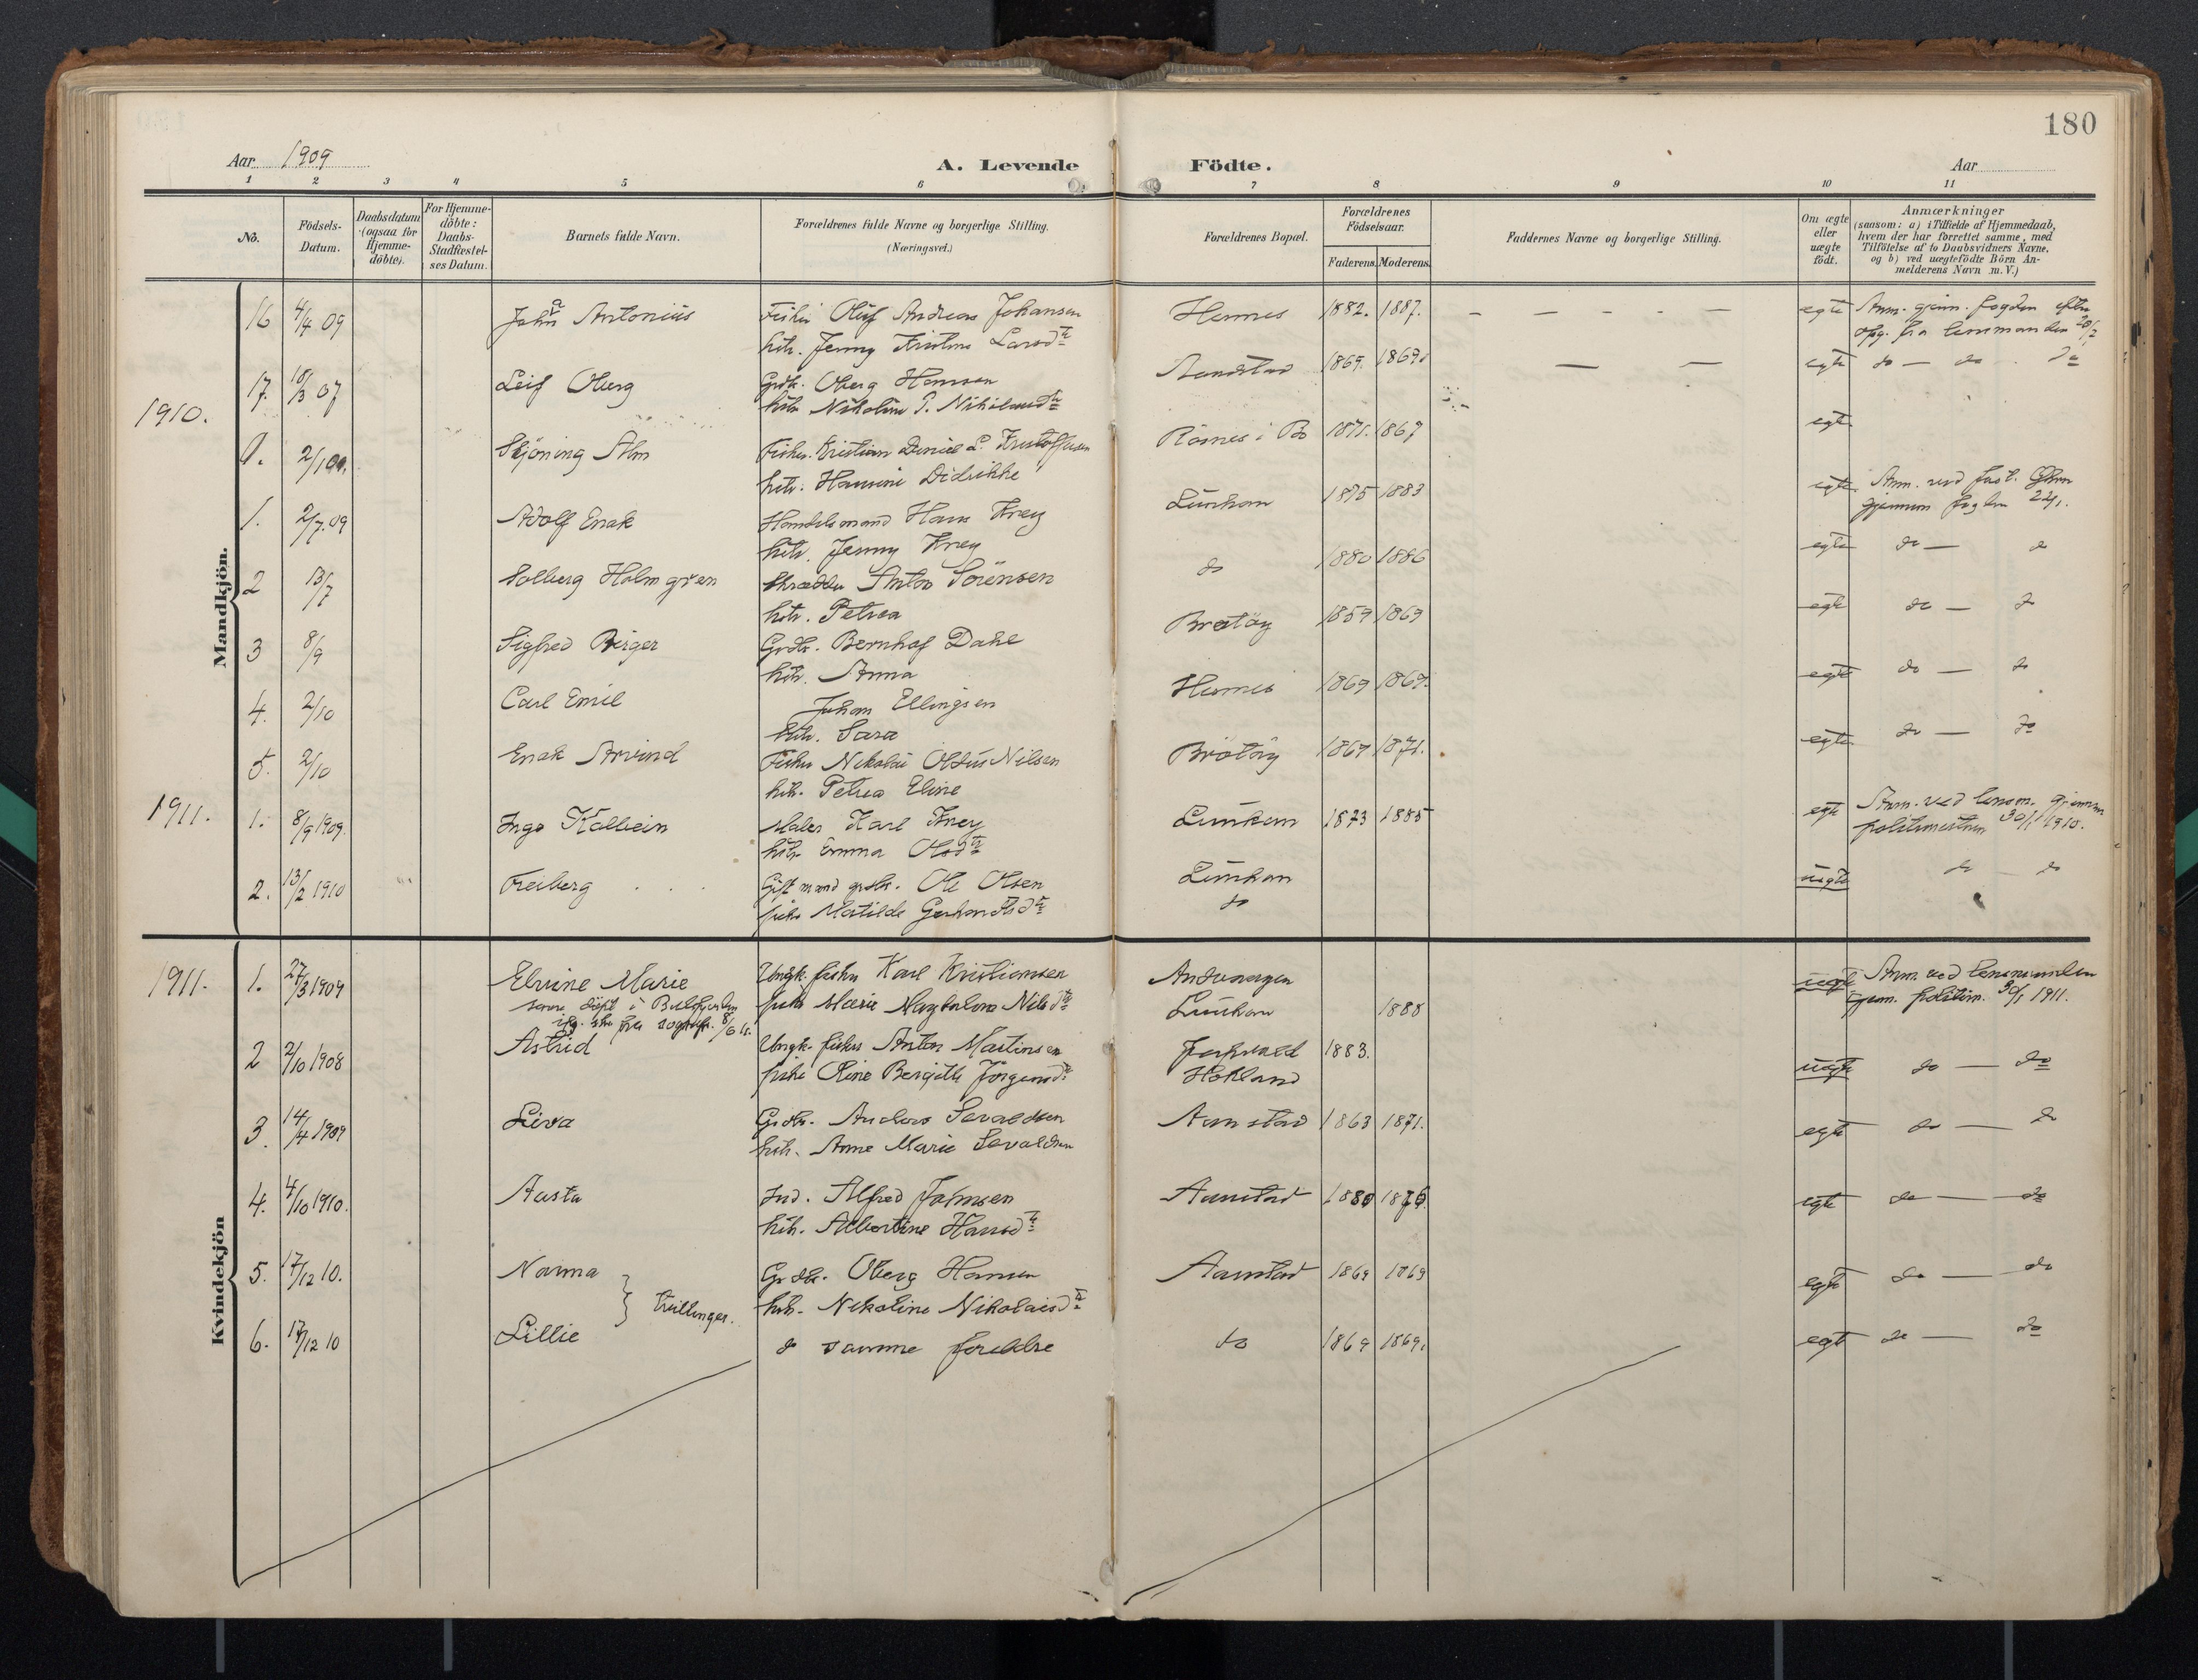 180
Aar 1909
A. Levende Födte.
Aar
1 2 3 4 5 6 7 8 9 10 11
No.
Födsels-
Datum.
Daabsdatum
(ogsaa for
Hjemme-
döbte).
For Hjemme-
döbte:
Daabs-
Stadfæstel-
ses Datum.
Barnets fulde Navn.
Forældrenes fulde Navne og borgerlige Stilling.
(Næringsvei.)
Forældrenes Bopæl.
Forældrenes
Födselsaar.
Faderens. Moderens.
Faddernes Navne og borgerlige Stilling.
Om ægte
eller
uægte
födt.
Anmærkninger
(saasom: a) i Tilfælde af Hjemmedaab,
hvem der har forrettet samme, med
Tilföielse af to Daabsvidners Navne,
og b) ved uægtefödte Börn An-
melderens Navn m. V.)
Mandkjön.
16 4/4 09 Johan Antonius Fisker Oluf Andreas Johansen Hennes 1882. 1887. - - - - - egte Anm. gjem. fogden efter
hstr. Jenny Kristine Larsdtr opg. fra lensmanden 20/2
17. 18/3 07 Leif Oberg Grdbr. Oberg Hansen 1869. 1869. — — egte do — do do
hstr. Nikoline P. Nikolaisdtr
1910.
1. Skjöning Alm Fisker. Kristian Daniel L. Kristoffersen Römnes i Bö 1871. 1867 egte
hstr. Hansine Didrikke
1. 2/7.09 Adolf Enok Handelsmand Hans Krey Lunkan 1875 1883 egte Anm. ved
hstr. Jenny Krey gjennem fogden 22/1.
2 13/7 Solberg Holmgren Skrædder Anton Sörensen do 1880 1886 egte do — do
hstr. Petrea
3 8/9 Sigfred Birger Grdbr. Bernhof Dahl Bratöy 1859 1869 egte do — do
hstr. Anna
4. 2/10 Carl Emil Johan Ellingsen Hennes 1869 1869. egte do — do
hstr. Sara
5. 2/10 Enok Arvind Fisker Nikolai Olsen Nilsen Bratöy 1869 1871. egte do — do
hstr. Petrea Eline
1911. 1. 8/9 1909. Inge Kolbein Maler Karl Krey Lunkan 1873 1885 egte Anm. ved lensm. gjennem
hstr. Emma Olsdtr politimesteren 30/1 1910.
2. 13/2 1910 Freiberg Gift mand grdbr. Ole Olsen Lunkan uegte do — do
pike Matilde Gerhardtsdtr do
Kvindekjön
1911. 1. 27/3 1909 Elvine Marie Ungk. fisker Karl Kristiansen Andvaagen uegte Anm. ved lensmanden
senere döpt i pike Marie Magdalena Nilsdtr Lunkan 1888 gjem. politim. 30/1 1911.
2 2/10 1908 Astrid Ungk. fisker Anton Martinsen 1883. uegte do — do
pike Oline Bergitte Jörgensdtr Hokland
3. 14/4 1909 Liva Grdbr. Anders Sevaldsen Aanstad 1863 1871. egte do — do
hstr. Anne Marie Sevaldsen
4. 4/10 1910. Aasta Ind. Alfred Johnsen Aanstad 1880 1876. egte do — do
hstr. Albertine Hansdtr
5. 17/12 10. Norma Grdbr. Oberg Hansen Aanstad 1869 1869 egte do — do
} tvillinger. hstr. Nikoline Nikolaisdtr
6. 17/12 10 Lillie do samme foreldre do 1869 1869. egte do — do